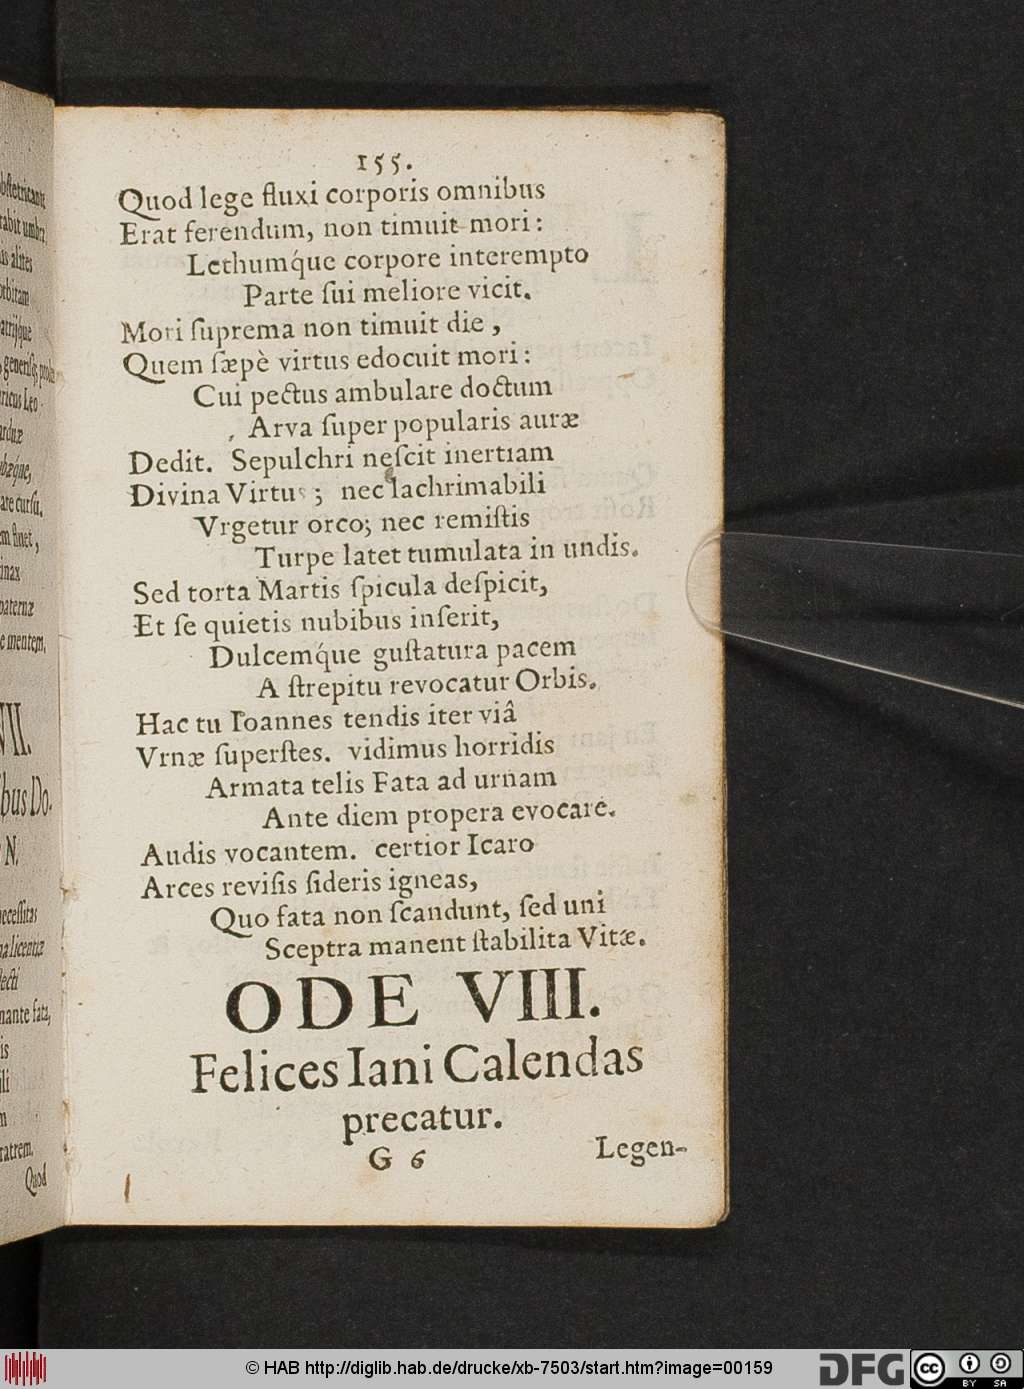 155.
Quod lege fluxi corporis omnibus
Erat ferendum, non timuit mori:
Lethumq́ue corpore interempto
Parte ſui meliore vicit.
Mori ſuprema non timuit die,
Quem ſæpè virtus edocuit mori:
Cui pectus ambulare doctum
Arva ſuper popularis auræ
Dedit. Sepulchri neſcit inertiam
Divina Virtus; nec lachrimabili
Vrgetur orco; nec remiſtis
Turpe latet tumulata in undis.
Sed torta Martis ſpicula deſpicit,
Et ſe quietis nubibus inſerit,
Dulcemq́ue guſtatura pacem
A ſtrepitu revocatur Orbis.
Hac tu Ioannes tendis iter viâ
Vrnæ ſuperſtes. vidimus horridis
Armata telis Fata ad urnam
Ante diem propera evocare.
Audis vocantem. certior Icaro
Arces reviſis ſideris igneas,
Quo fata non ſcandunt, ſed uni
Sceptra manent ſtabilita Vitæ.
ODE VIII.
Felices Iani Calendas
precatur.
G 6 Legen-
© HAB http://diglib.hab.de/drucke/xb-7503/start.htm?image=00159
DFG
cc BY SA